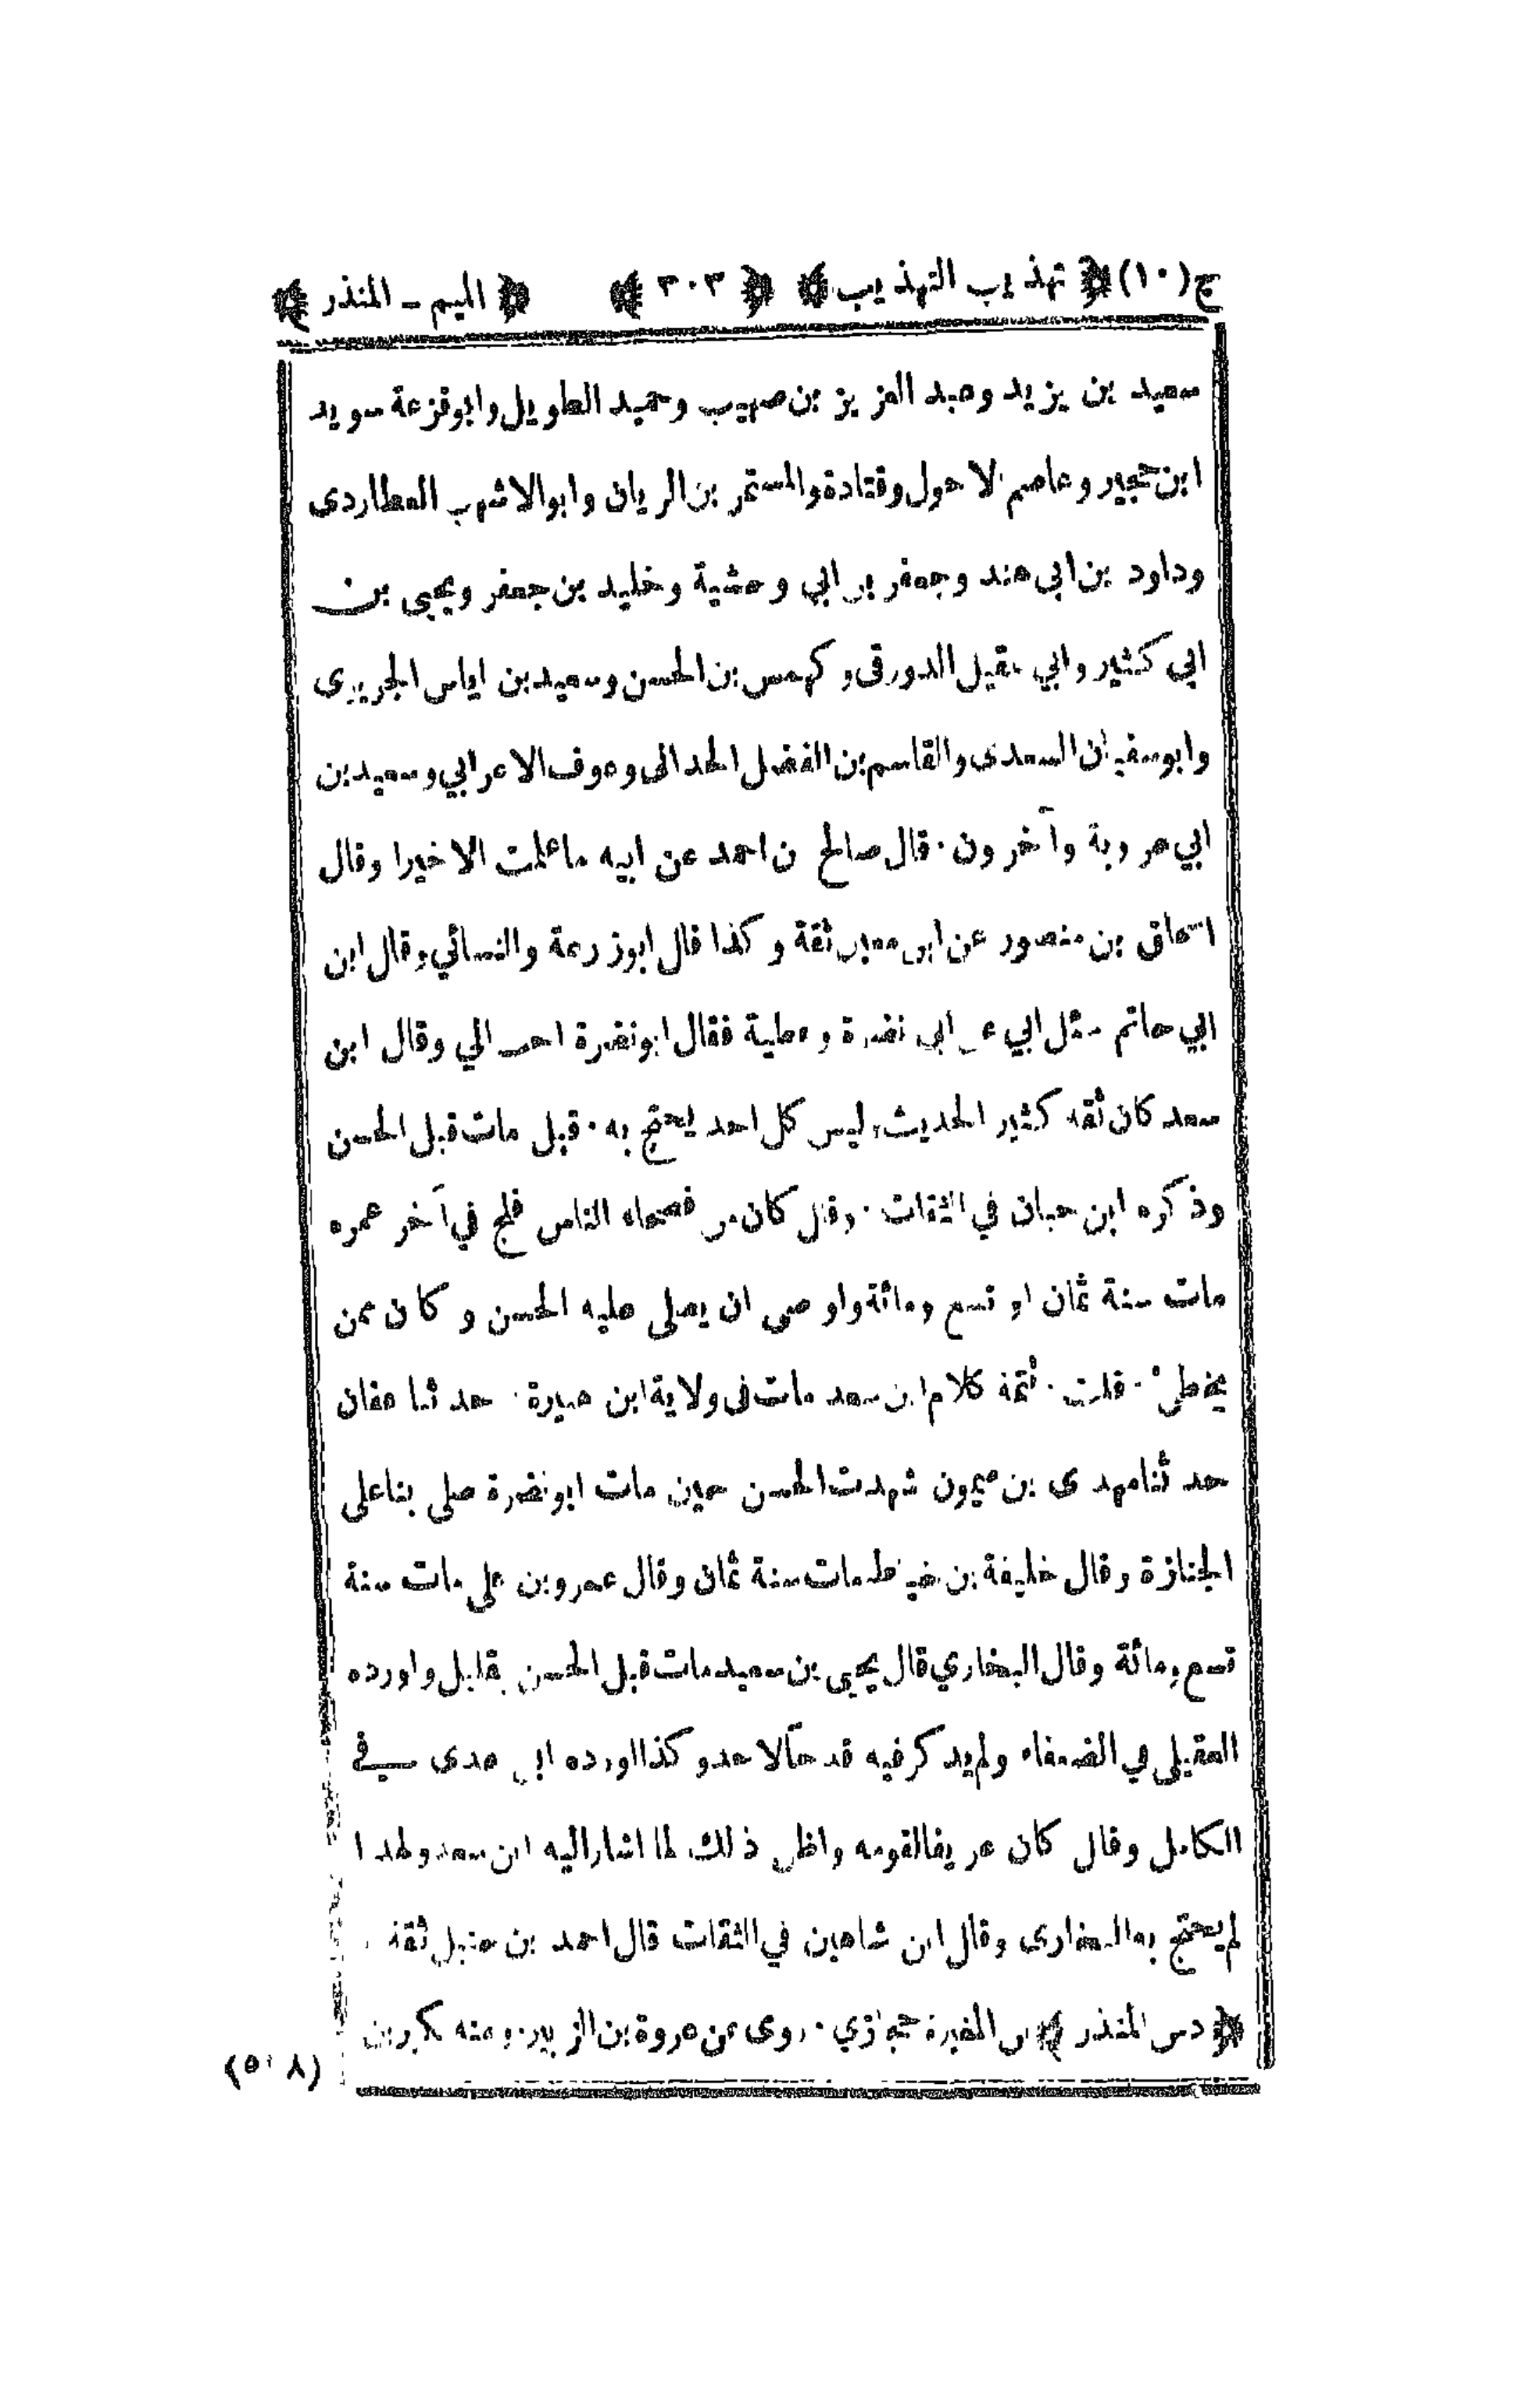 ج(١٠) ﴿ تهذيب التهذيب ﴾ ﴿ ٣٠٣ ﴾ ﴿ الميم ـ المنذر ﴾
سعيد بن يزيد وعبد العزيز بن صهيب وحميد الطويل وابو قزعة سويد
ابن حجير وعاصم الاحول وقتادة والمستمر بن الريان وابو الاشهب العطاردى
وداود بن ابى هند وجعفر بن ابي وحشية وخليد بن جعفر ويحيى بن
ابي كثير وابي عقيل الدورقى وكهمس بن الحسن وسعيد بن اياس الجريرى
وابو سفيان السعدى والقاسم بن الفضل الحدانى وعوف الاعرابي وسعيد بن
ابي عروبة وآخرون · قال صالح بن احمد عن ابيه ما علمت الا خيرا وقال
اسحاق بن منصور عن ابن معين ثقة وكذا قال ابو زرعة والنسائي وقال ابن
ابي حاتم سئل ابي عن ابى نضرة وعطية فقال ابو نضرة احب الي وقال ابن
سعد كان ثقة كثير الحديث وليس كل احد يحتج به · قيل مات قبل الحسن
وذكره ابن حبان في الثقات · وقال كان من فصحاء الناس فلج في آخر عمره
مات سنة ثمان او تسع ومائة واوصى ان يصلى عليه الحسن وكان ممن
يخطئ · قلت · تتمة كلام ابن سعد مات فى ولاية ابن هبيرة · حدثنا عفان
حدثنا مهدى بن ميمون شهدت الحسن حين مات ابو نضرة صلى بنا على
الجنازة وقال خليفة بن خياط مات سنة ثمان وقال عمرو بن على مات سنة
تسع ومائة وقال البخاري قال يحيى بن سعيد مات قبل الحسن بقليل واورده
العقيلى في الضعفاء ولم يذكر فيه قدحا لاحد وكذا اورده ابن عدى في
الكامل وقال كان عريفا لقومه واظن ذلك لما اشار اليه ابن سعد ولهذا
لم يحتج به البخارى وقال ابن شاهين في الثقات قال احمد بن حنبل ثقة
﴿ دس المنذر ﴾ بن المغيرة حجازي · روى عن عروة بن الزبير · وعنه بكير بن